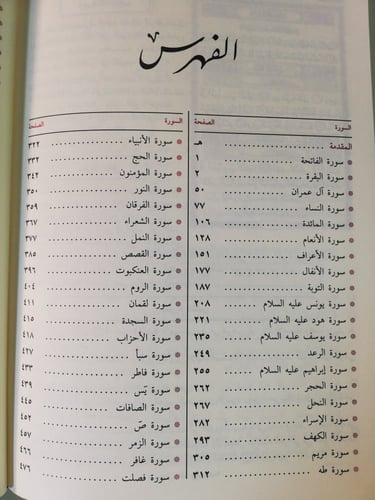 الفهرس
السورة الصفحة
المقدمة هـ
سورة الفاتحة ١
سورة البقرة ٢
سورة آل عمران ٥٠
سورة النساء ٧٧
سورة المائدة ١٠٦
سورة الأنعام ١٢٨
سورة الأعراف ١٥١
سورة الأنفال ١٧٧
سورة التوبة ١٨٧
سورة يونس عليه السلام ٢٠٨
سورة هود عليه السلام ٢٢١
سورة يوسف عليه السلام ٢٣٥
سورة الرعد ٢٤٩
سورة إبراهيم عليه السلام ٢٥٥
سورة الحجر ٢٦٢
سورة النحل ٢٦٧
سورة الإسراء ٢٨٢
سورة الكهف ٢٩٣
سورة مريم ٣٠٥
سورة طه ٣١٢
السورة الصفحة
سورة الأنبياء ٣٢٢
سورة الحج ٣٣٢
سورة المؤمنون ٣٤٢
سورة النور ٣٥٠
سورة الفرقان ٣٥٩
سورة الشعراء ٣٦٧
سورة النمل ٣٧٧
سورة القصص ٣٨٥
سورة العنكبوت ٣٩٦
سورة الروم ٤٠٤
سورة لقمان ٤١١
سورة السجدة ٤١٥
سورة الأحزاب ٤١٨
سورة سبأ ٤٢٧
سورة فاطر ٤٣٣
سورة يٓس ٤٣٩
سورة الصافات ٤٤٥
سورة صٓ ٤٥٢
سورة الزمر ٤٥٧
سورة غافر ٤٦٦
سورة فصلت ٤٧٦